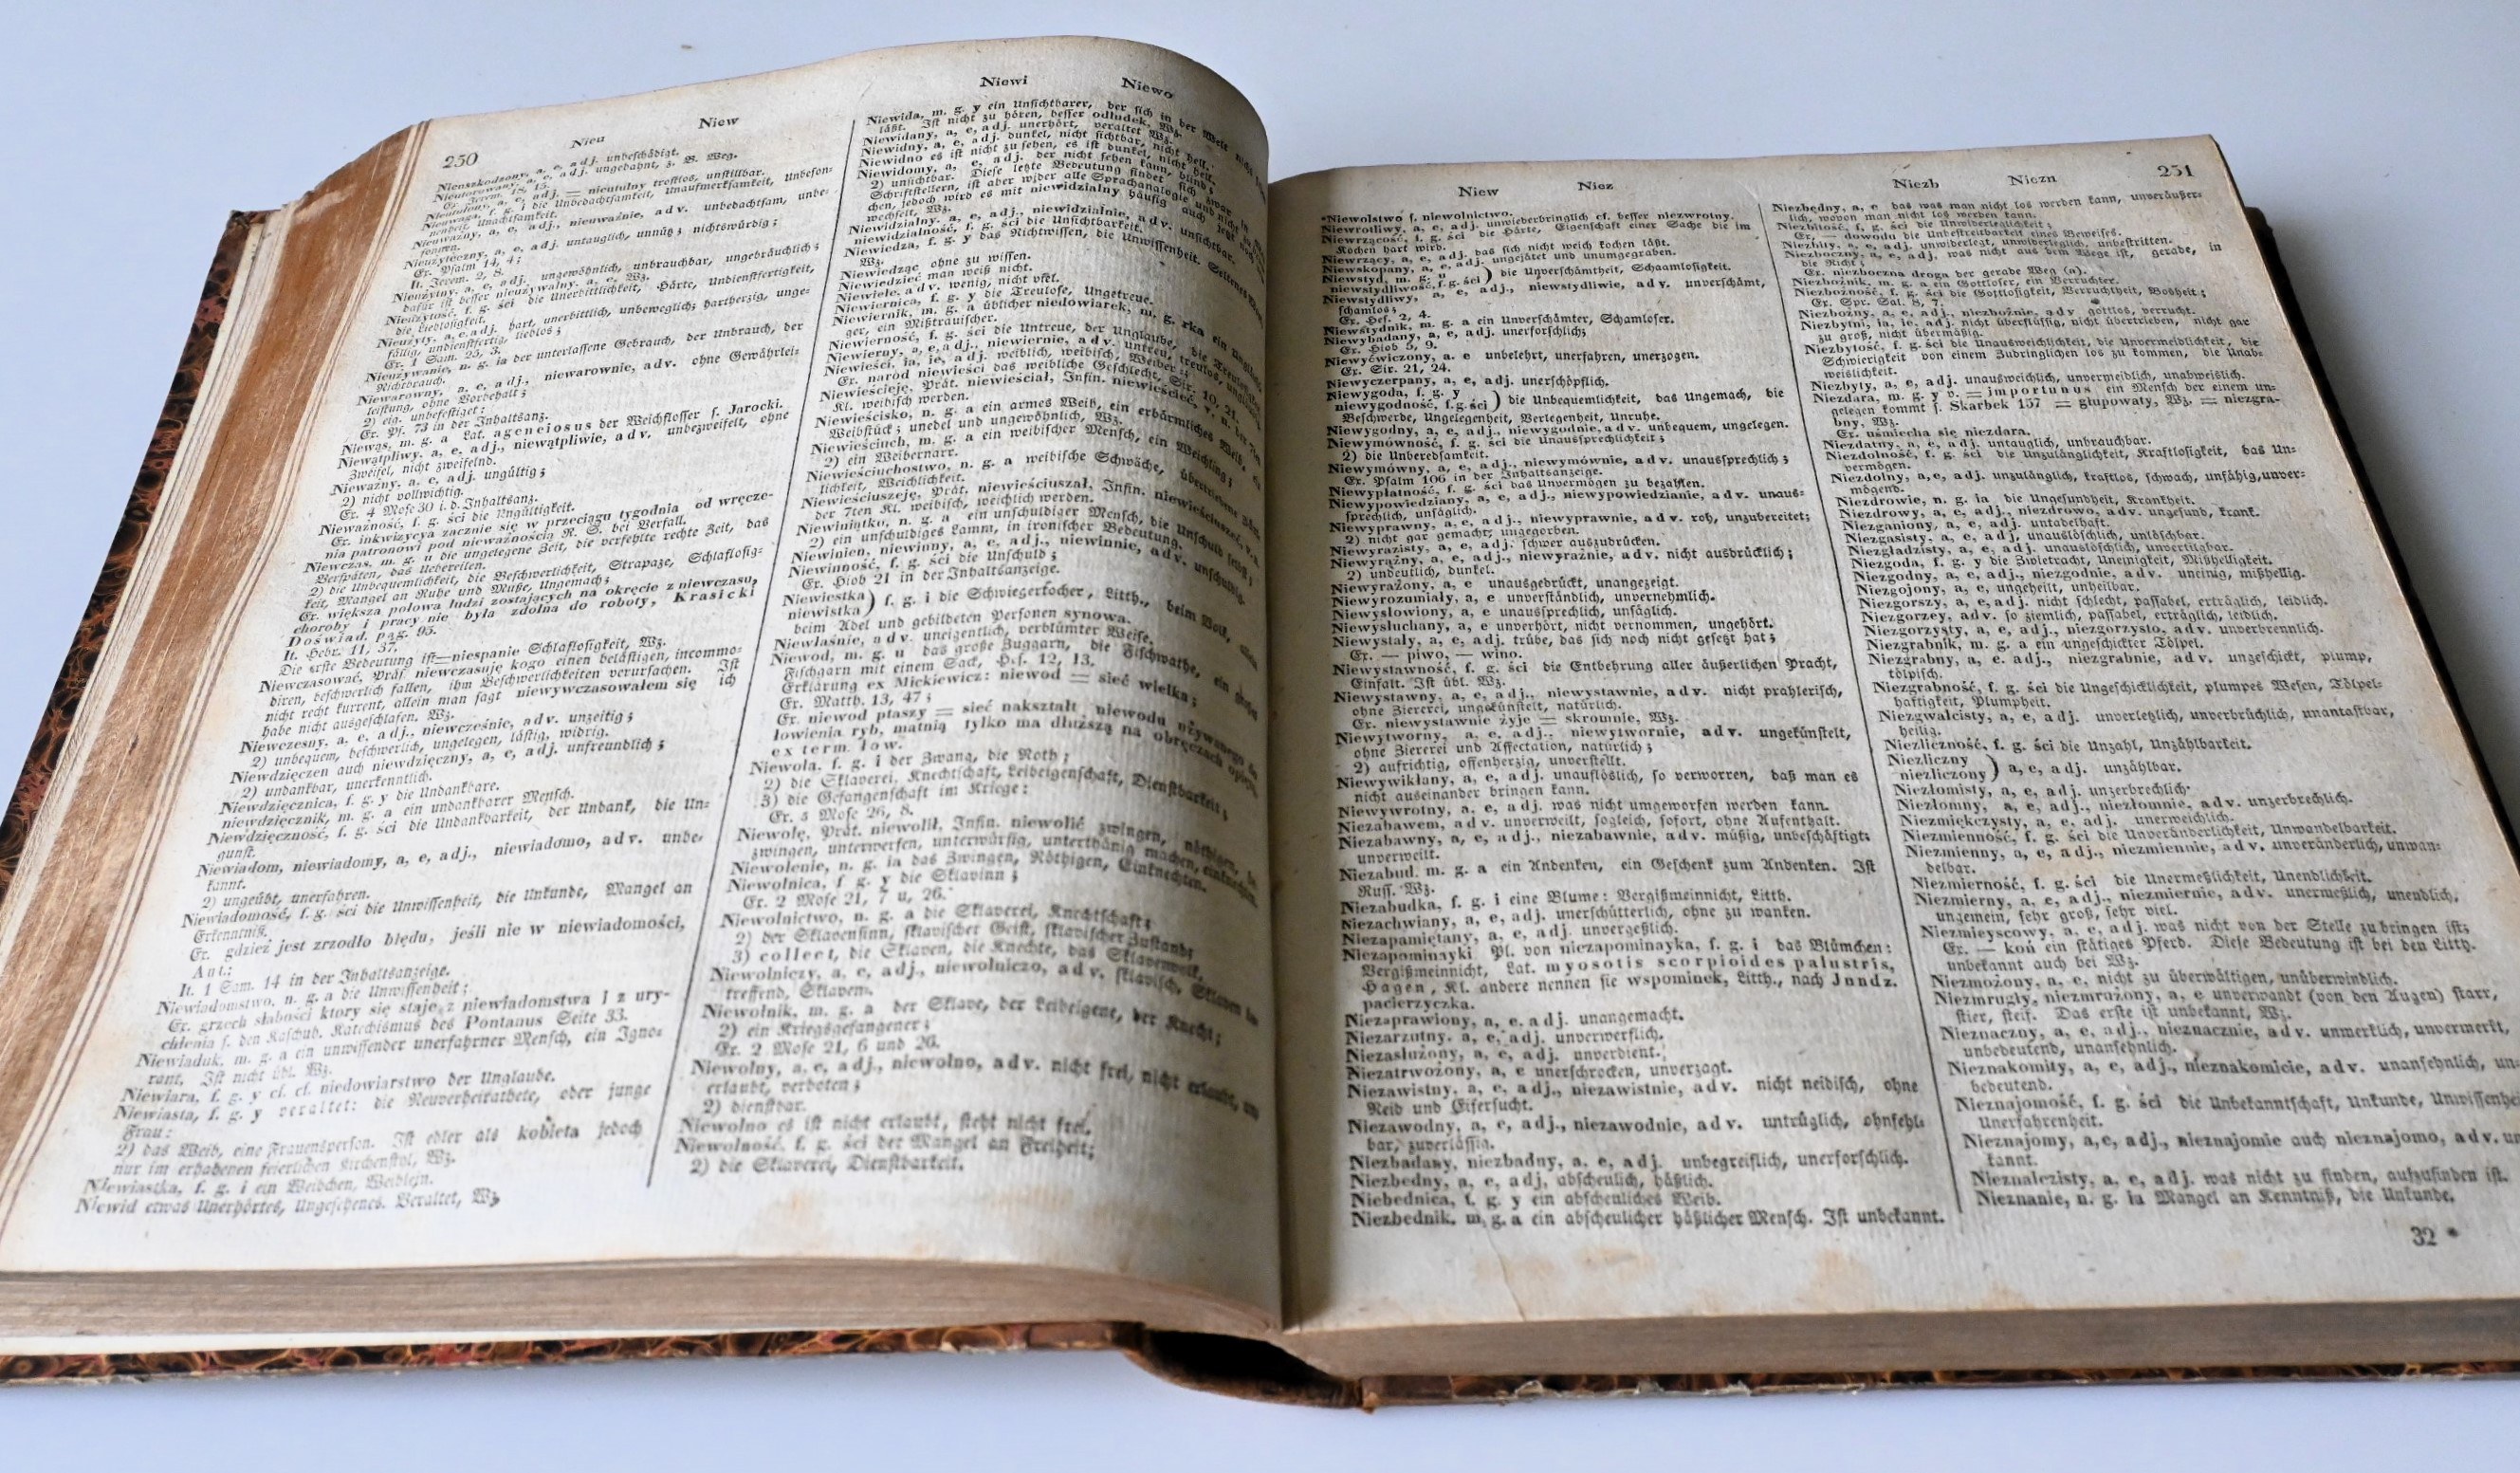 250 Nieu Niew
Nieuszkodzony, a, e, adj. unbeschädigt.
Nieutorowany, a, e, adj. ungebahnt, z. B. Weg.
Er. Jerem. 18, 15.
Nieutulony, a, e, adj. = nieutulny trostlos, unstillbar.
Nieuwaga, f. g. i die Unbedachtsamkeit, Unaufmerksamkeit, Unbeson-
nenheit, Unachtsamkeit.
Nieuważny, a, e, adj., nieuważnie, adv. unbedachtsam, unbe-
sonnen.
Nieużyteczny, a, e, adj. untauglich, unnütz; nichtswürdig;
Er. Psalm 14, 4;
It. Jerem. 2, 8.
Nieużytny, a, e, adj. ungewöhnlich, unbrauchbar, ungebräuchlich;
dafür ist besser nieużywalny, a, e, Wz.
Nieużytość, f. g. ści die Unerbittlichkeit, Härte, Undienstfertigkeit,
die Lieblosigkeit.
Nieużyty, a, e, adj. hart, unerbittlich, unbeweglich; hartherzig, unge-
fällig, undienstfertig, lieblos;
Er. 1 Sam. 25, 3.
Nieużywanie, n. g. ia der unterlassene Gebrauch, der Unbrauch, der
Nichtbrauch.
Niewarowny, a, e, adj., niewarownie, adv. ohne Gewährlei-
stung, ohne Vorbehalt;
2) eig. unbefestiget;
Er. Ps. 73 in der Inhaltsanz.
Niewąs, m. g. a Lat. ageneiosus der Weichflosser s. Jarocki.
Niewątpliwy, a, e, adj., niewątpliwie, adv. unbezweifelt, ohne
Zweifel, nicht zweifelnd.
Nieważny, a, e, adj. ungültig;
2) nicht vollwichtig.
Er. 4 Mose 30 i. d. Inhaltsanz.
Nieważność, f. g. ści die Ungültigkeit.
Er. inkwizycya zacznie się w przeciągu tygodnia od wręcze-
nia patronowi pod nieważnością R. S. bei Verfall.
Niewczas, m. g. u die ungelegene Zeit, die verfehlte rechte Zeit, das
Verspäten, das Uebereilen.
2) die Unbequemlichkeit, die Beschwerlichkeit, Strapaze, Schlaflosig-
keit, Mangel an Ruhe und Muße, Ungemach;
Er. większa połowa ludzi zostających na okręcie z niewczasu,
choroby i pracy nie była zdolna do roboty, Krasicki
Doświad. pag. 95.
It. Hebr. 11, 37.
Die erste Bedeutung ist=niespanie Schlaflosigkeit, Wz.
Niewczasować, Präs. niewczasuję kogo einen belästigen, incommo-
diren, beschwerlich fallen, ihm Beschwerlichkeiten verursachen. Ist
nicht recht kurrent, allein man sagt niewywczasowałem się ich
habe nicht ausgeschlafen. Wz.
Niewczesny, a, e, adj., niewcześnie, adv. unzeitig;
2) unbequem, beschwerlich, ungelegen, lästig, widrig.
Niewdzięczen auch niewdzięczny, a, e, adj. unfreundlich;
2) undankbar, unerkenntlich.
Niewdzięcznica, f. g. y die Undankbare.
niewdzięcznik, m. g. a ein undankbarer Mensch.
Niewdzięczność, f. g. ści die Undankbarkeit, der Undank, die Un-
gunst.
Niewiadom, niewiadomy, a, e, adj., niewiadomo, adv. unbe-
kannt.
2) ungeübt, unerfahren.
Niewiadomość, f. g. ści die Unwissenheit, die Unkunde, Mangel an
Erkenntniß.
Er. gdzież jest zrzodło błędu, jeśli nie w niewiadomości,
Aut.;
It. 1 Sam. 14 in der Inhaltsanzeige.
Niewiadomstwo, n. g. a die Unwissenheit;
Er. grzech słabości ktory się staje z niewiadomstwa i z ury-
chlenia s. den Kaschub. Katechismus des Pontanus Seite 33.
Niewiaduk, m. g. a ein unwissender unerfahrner Mensch, ein Igno-
rant, Ist nicht übl. Wz.
Niewiara, f. g. y cf. cf. niedowiarstwo der Unglaube.
Niewiasta, f. g. y veraltet: die Neuverheirathete, oder junge
Frau;
2) das Weib, eine Frauensperson. Ist edler als kobieta jedoch
nur im erhabenen feierlichen Kirchenstyl, Wz.
Niewiastka, f. g. i ein Weibchen, Weiblein.
Niewid etwas Unerhörtes, Ungesehenes. Veraltet, Wz.
Niewi Niewo
Niewida, m. g. y ein Unsichtbarer, der sich in der Welt nicht
läßt. Ist nicht zu hören, besser odludek, Wz.
Niewidany, a, e, adj. unerhört, veraltet Wz.
Niewidny, a, e, adj. dunkel, nicht sichtbar, nicht hell.
Niewidno es ist nicht zu sehen, es ist dunkel, nicht hell.
Niewidomy, a, e, adj. der nicht sehen kann, blind;
2) unsichtbar. Diese letzte Bedeutung findet sich zwar in
Schriftstellern, ist aber wider alle Sprachanalogie und nicht zu
chen, jedoch wird es mit niewidzialny häufig auch jetzt noch
wechselt, Wz.
Niewidzialny, a, e, adj., niewidzialnie, adv. unsichtbar.
niewidzialność, f. g. ści die Unsichtbarkeit.
Niewiedza, f. g. y das Nichtwissen, die Unwissenheit. Seltenes
Wz.
Niewiedząc ohne zu wissen.
Niewiedzieć man weiß nicht.
Niewiele, adv. wenig, nicht viel.
Niewiernica, f. g. y die Treulose, Ungetreue.
Niewiernik, m. g. a üblicher niedowiarek, m. g. rka ein
ger, ein Mißtrauischer.
Niewierność, f. g. ści die Untreue, der Unglaube, die
Niewierny, a, e, adj., niewiernie, adv. untreu, treulos,
Niewieści, ia, ie, adj. weiblich, weibisch, Weiber-;
Er. naród niewieści das weibliche Geschlecht, Sir. 10, 21.
Niewieścieję, Prät. niewieściał, Infin. niewieścieć, v. n. der
Kl. weibisch werden.
Niewieścisko, n. g. a ein armes Weib, ein erbärmliches Weib,
Weibstück; unedel und ungewöhnlich, Wz.
Niewieściuch, m. g. a ein weibischer Mensch, ein Weichling;
2) ein Weibernarr.
Niewieściuchostwo, n. g. a weibische Schwäche, übertriebene
lichkeit, Weichlichkeit.
Niewieściuszeję, Prät. niewieściuszał, Infin. niewieściuszeć, v. n.
der 7ten Kl. weibisch, weichlich werden.
Niewiniątko, n. g. a ein unschuldiger Mensch, die Unschuld selbst;
2) ein unschuldiges Lamm, in ironischer Bedeutung.
Niewinien, niewinny, a, e, adj., niewinnie, adv. unschuldig.
Niewinność, f. g. ści die Unschuld;
Er. Hiob 21 in der Inhaltsanzeige.
Niewiestka
niewistka ) f. g. i die Schwiegertochter, Litth., beim Volk, allein
beim Adel und gebildeten Personen synowa.
Niewłaśnie, adv. uneigentlich, verblümter Weise.
Niewod, m. g. u das große Zuggarn, die Fischwathe, ein großes
Fischgarn mit einem Sack, H.s. 12, 13.
Erklärung ex Mickiewicz: niewod = sieć wielka;
Er. Matth. 13, 47;
Er. niewod ptaszy = sieć nakształt niewodu używanego do
łowienia ryb, matnią tylko ma dłuższą na obręczach opiętą,
ex term. łow.
Niewola, f. g. i der Zwang, die Noth;
2) die Sklaverei, Knechtschaft, Leibeigenschaft, Dienstbarkeit;
3) die Gefangenschaft im Kriege:
Er. 5 Mose 26, 8.
Niewolę, Prät. niewolił, Infin. niewolić zwingen, nöthigen,
zwingen, unterwerfen, unterwürfig, unterthänig machen, einknechten.
Niewolenie, n. g. ia das Zwingen, Nöthigen, Einknechten.
Niewolnica, f. g. y die Sklavinn;
Er. 2 Mose 21, 7 u. 26.
Niewolnictwo, n. g. a die Sklaverei, Knechtschaft;
2) der Sklavensinn, sklavischer Geist, sklavischer Zustand;
3) collect, die Sklaven, die Knechte, das Sklavenvolk.
Niewolniczy, a, e, adj., niewolniczo, adv. sklavisch, Sklaven be-
treffend, Sklaven-.
Niewolnik, m. g. a der Sklave, der Leibeigene, der Knecht;
2) ein Kriegsgefangener;
Er. 2 Mose 21, 6 und 26.
Niewolny, a, e, adj., niewolno, adv. nicht frei, nicht erlaubt, un-
erlaubt, verboten;
2) dienstbar.
Niewolno es ist nicht erlaubt, steht nicht frei.
Niewolność, f. g. ści der Mangel an Freiheit;
2) die Sklaverei, Dienstbarkeit.
Niew Niez
*Niewolstwo s. niewolnictwo.
Niewrotliwy, a, e, adj. unwiederbringlich cf. besser niezwrotny.
Niewrzącość, f. g. ści die Härte, Eigenschaft einer Sache die im
Kochen hart wird.
Niewrzący, a, e, adj. das sich nicht weich kochen läßt.
Niewskopany, a, e, adj. ungejätet und unumgegraben.
Niewstyd, m. g. u
niewstydliwość, f. g. ści ) die Unverschämtheit, Schaamlosigkeit.
Niewstydliwy, a, e, adj., niewstydliwie, adv. unverschämt,
schamlos;
Er. Hes. 2, 4.
Niewstydnik, m. g. a ein Unverschämter, Schamloser.
Niewybadany, a, e, adj. unerforschlich;
Er. Hiob 5, 9.
Niewyćwiczony, a. e unbelehrt, unerfahren, unerzogen.
Er. Sir. 21, 24.
Niewyczerpany, a, e, adj. unerschöpflich.
Niewygoda, f. g. y
niewygodność, f. g. ści ) die Unbequemlichkeit, das Ungemach, die
Beschwerde, Ungelegenheit, Verlegenheit, Unruhe.
Niewygodny, a, e, adj., niewygodnie, adv. unbequem, ungelegen.
Niewymówność, f. g. ści die Unaussprechlichkeit;
2) die Unberedsamkeit.
Niewymówny, a, e, adj., niewymównie, adv. unaussprechlich;
Er. Psalm 106 in der Inhaltsanzeige.
Niewypłatność, f. g. ści das Unvermögen zu bezahlen.
Niewypowiedziany, a, e, adj., niewypowiedzianie, adv. unaus-
sprechlich, unsäglich.
Niewyprawny, a, e, adj., niewyprawnie, adv. roh, unzubereitet;
2) nicht gar gemacht, ungegorben.
Niewyrazisty, a, e, adj. schwer auszudrücken.
Niewyraźny, a, e, adj., niewyraźnie, adv. nicht ausdrücklich;
2) undeutlich, dunkel.
Niewyrażony, a, e unausgedrückt, unangezeigt.
Niewyrozumiały, a, e unverständlich, unvernehmlich.
Niewysłowiony, a, e unaussprechlich, unsäglich.
Niewysłuchany, a, e unverhört, nicht vernommen, ungehört.
Niewystały, a, e, adj. trübe, das sich noch nicht gesetzt hat;
Er. — piwo, — wino.
Niewystawność, f. g. ści die Entbehrung aller äußerlichen Pracht,
Einfalt. Ist übl. Wz.
Niewystawny, a, e, adj., niewystawnie, adv. nicht prahlerisch,
ohne Ziererei, ungekünstelt, natürlich.
Er. niewystawnie żyje = skromnie, Wz.
Niewytworny, a, e, adj., niewytwornie, adv. ungekünstelt,
ohne Ziererei und Affectation, natürlich;
2) aufrichtig, offenherzig, unverstellt.
Niewywikłany, a, e, adj. unauflöslich, so verworren, daß man es
nicht auseinander bringen kann.
Niewywrotny, a, e, adj. was nicht umgeworfen werden kann.
Niezabawem, adv. unverweilt, sogleich, sofort, ohne Aufenthalt.
Niezabawny, a, e, adj., niezabawnie, adv. müßig, unbeschäftigt;
unverweilt.
Niezabud, m. g. a ein Andenken, ein Geschenk zum Andenken. Ist
Russ. Wz.
Niezabudka, f. g. i eine Blume: Vergißmeinnicht, Litth.
Niezachwiany, a, e, adj. unerschütterlich, ohne zu wanken.
Niezapamiętany, a, e, adj. unvergeßlich.
Niezapominayki Pl. von niezapominayka, f. g. i das Blümchen:
Vergißmeinnicht, Lat. myosotis scorpioides palustris,
Hagen, Kl. andere nennen sie wspominek, Litth., nach Jundz.
pacierzyczka.
Niezaprawiony, a, e. adj. unangemacht.
Niezarzutny, a, e, adj. unverwerflich.
Niezasłużony, a, e, adj. unverdient.
Niezatrwożony, a, e unerschrocken, unverzagt.
Niezawistny, a, e, adj., niezawistnie, adv. nicht neidisch, ohne
Neid und Eifersucht.
Niezawodny, a, e, adj., niezawodnie, adv. untrüglich, ohnfehl-
bar, zuverlässig.
Niezbadany, niezbadny, a, e, adj. unbegreiflich, unerforschlich.
Niezbedny, a, e, adj, abscheulich, häßlich.
Niebednica, f. g. y ein abscheuliches Weib.
Niezbednik, m, g. a ein abscheulicher häßlicher Mensch. Ist unbekannt.
Niezb Niezn 251
Niezbędny, a, e das was man nicht los werden kann, unveräußer-
lich, wovon man nicht los werden kann.
Niezbitość, f. g. ści die Unwiderleglichkeit;
Er. — dowodu die Unbestreitbarkeit eines Beweises.
Niezbity, a, e, adj. unwiderlegt, unwiderleglich, unbestritten.
Niezboczny, a, e, adj. was nicht aus dem Wege ist, gerade, in
die Richt;
Er. niezboczna droga der gerade Weg (a).
Niezbożnik, m. g. a ein Gottloser, ein Verruchter.
Niezbożność, f. g. ści die Gottlosigkeit, Verruchtheit, Bosheit;
Er. Spr. Sal. 8, 7.
Niezbożny, a, e, adj., niezbożnie, adv gottlos, verrucht.
Niezbytni, ia, ie, adj. nicht überflüssig, nicht übertrieben, nicht gar
zu groß, nicht übermäßig.
Niezbytość, f. g. ści die Unausweichlichkeit, die Unvermeidlichkeit, die
Schwierigkeit von einem Zudringlichen los zu kommen, die Unab-
weislichkeit.
Niezbyty, a, e, adj. unausweichlich, unvermeidlich, unabweislich.
Niezdara, m. g. y v. = importunus ein Mensch der einem un-
gelegen kommt s. Skarbek 157 = głupowaty, Wz. = niezgra-
bny, Wz.
Er. uśmiecha się niezdara.
Niezdatny, a, e, adj. untauglich, unbrauchbar.
Niezdolność, f. g. ści die Unzulänglichkeit, Kraftlosigkeit, das Un-
vermögen.
Niezdolny, a, e, adj. unzulänglich, kraftlos, schwach, unfähig, unver-
mögend.
Niezdrowie, n. g. ia die Ungesundheit, Krankheit.
Niezdrowy, a, e, adj., niezdrowo, adv. ungesund, krank.
Niezganiony, a, e, adj. untadelhaft.
Niezgasisty, a, e, adj, unauslöschlich, unlöschbar.
Niezgładzisty, a, e, adj. unauslöschlich, unvertilgbar.
Niezgoda, f. g. y die Zwietracht, Uneinigkeit, Mißhelligkeit.
Niezgodny, a, e, adj., niezgodnie, adv. uneinig, mißhellig.
Niezgojony, a, e, adj. ungeheilt, unheilbar.
Niezgorszy, a, e, adj. nicht schlecht, passabel, erträglich, leidlich.
Niezgorzey, adv. so ziemlich, passabel, erträglich, leidlich.
Niezgorzysty, a, e, adj., niezgorzysto, adv. unverbrennlich.
Niezgrabnik, m. g. a ein ungeschickter Tölpel.
Niezgrabny, a, e. adj., niezgrabnie, adv. ungeschickt, plump,
tölpisch.
Niezgrabność, f. g. ści die Ungeschicklichkeit, plumpes Wesen, Tölpel-
haftigkeit, Plumpheit.
Niezgwałcisty, a, e, adj. unverletzlich, unverbrüchlich, unantastbar,
heilig.
Niezliczność, f. g. ści die Unzahl, Unzählbarkeit.
Niezliczny
niezliczony ) a, e, adj. unzählbar.
Niezłomisty, a, e, adj. unzerbrechlich.
Niezłomny, a, e, adj., niezłomnie, adv. unzerbrechlich.
Niezmiękczysty, a, e, adj. unerweichlich.
Niezmienność, f. g. ści die Unveränderlichkeit, Unwandelbarkeit.
Niezmienny, a, e, adj., niezmiennie, adv. unveränderlich, unwan-
delbar.
Niezmierność, f. g. ści die Unermeßlichkeit, Unendlichkeit.
Niezmierny, a, e, adj., niezmiernie, adv. unermeßlich, unendlich,
ungemein, sehr groß, sehr viel.
Niezmieyscowy, a, e, adj. was nicht von der Stelle zu bringen ist;
Er. — koń ein stätiges Pferd. Diese Bedeutung ist bei den Litth.
unbekannt auch bei Wz.
Niezmożony, a, e, nicht zu überwältigen, unüberwindlich.
Niezmrugły, niezmrużony, a, e unverwandt (von den Augen) starr,
stier, steif. Das erste ist unbekannt, Wz.
Nieznaczny, a, e, adj., nieznacznie, adv. unmerklich, unvermerkt,
unbedeutend, unansehnlich.
Nieznakomity, a, e, adj., nieznakomicie, adv. unansehnlich, un-
bedeutend.
Nieznajomość, f. g. ści die Unbekanntschaft, Unkunde, Unwissenheit
Unerfahrenheit.
Nieznajomy, a, e, adj., nieznajomie auch nieznajomo, adv. un
kannt.
Nieznalezisty, a, e, adj. was nicht zu finden, aufzufinden ist.
Nieznanie, n. g. ia Mangel an Kenntniß, die Unkunde.
32 *